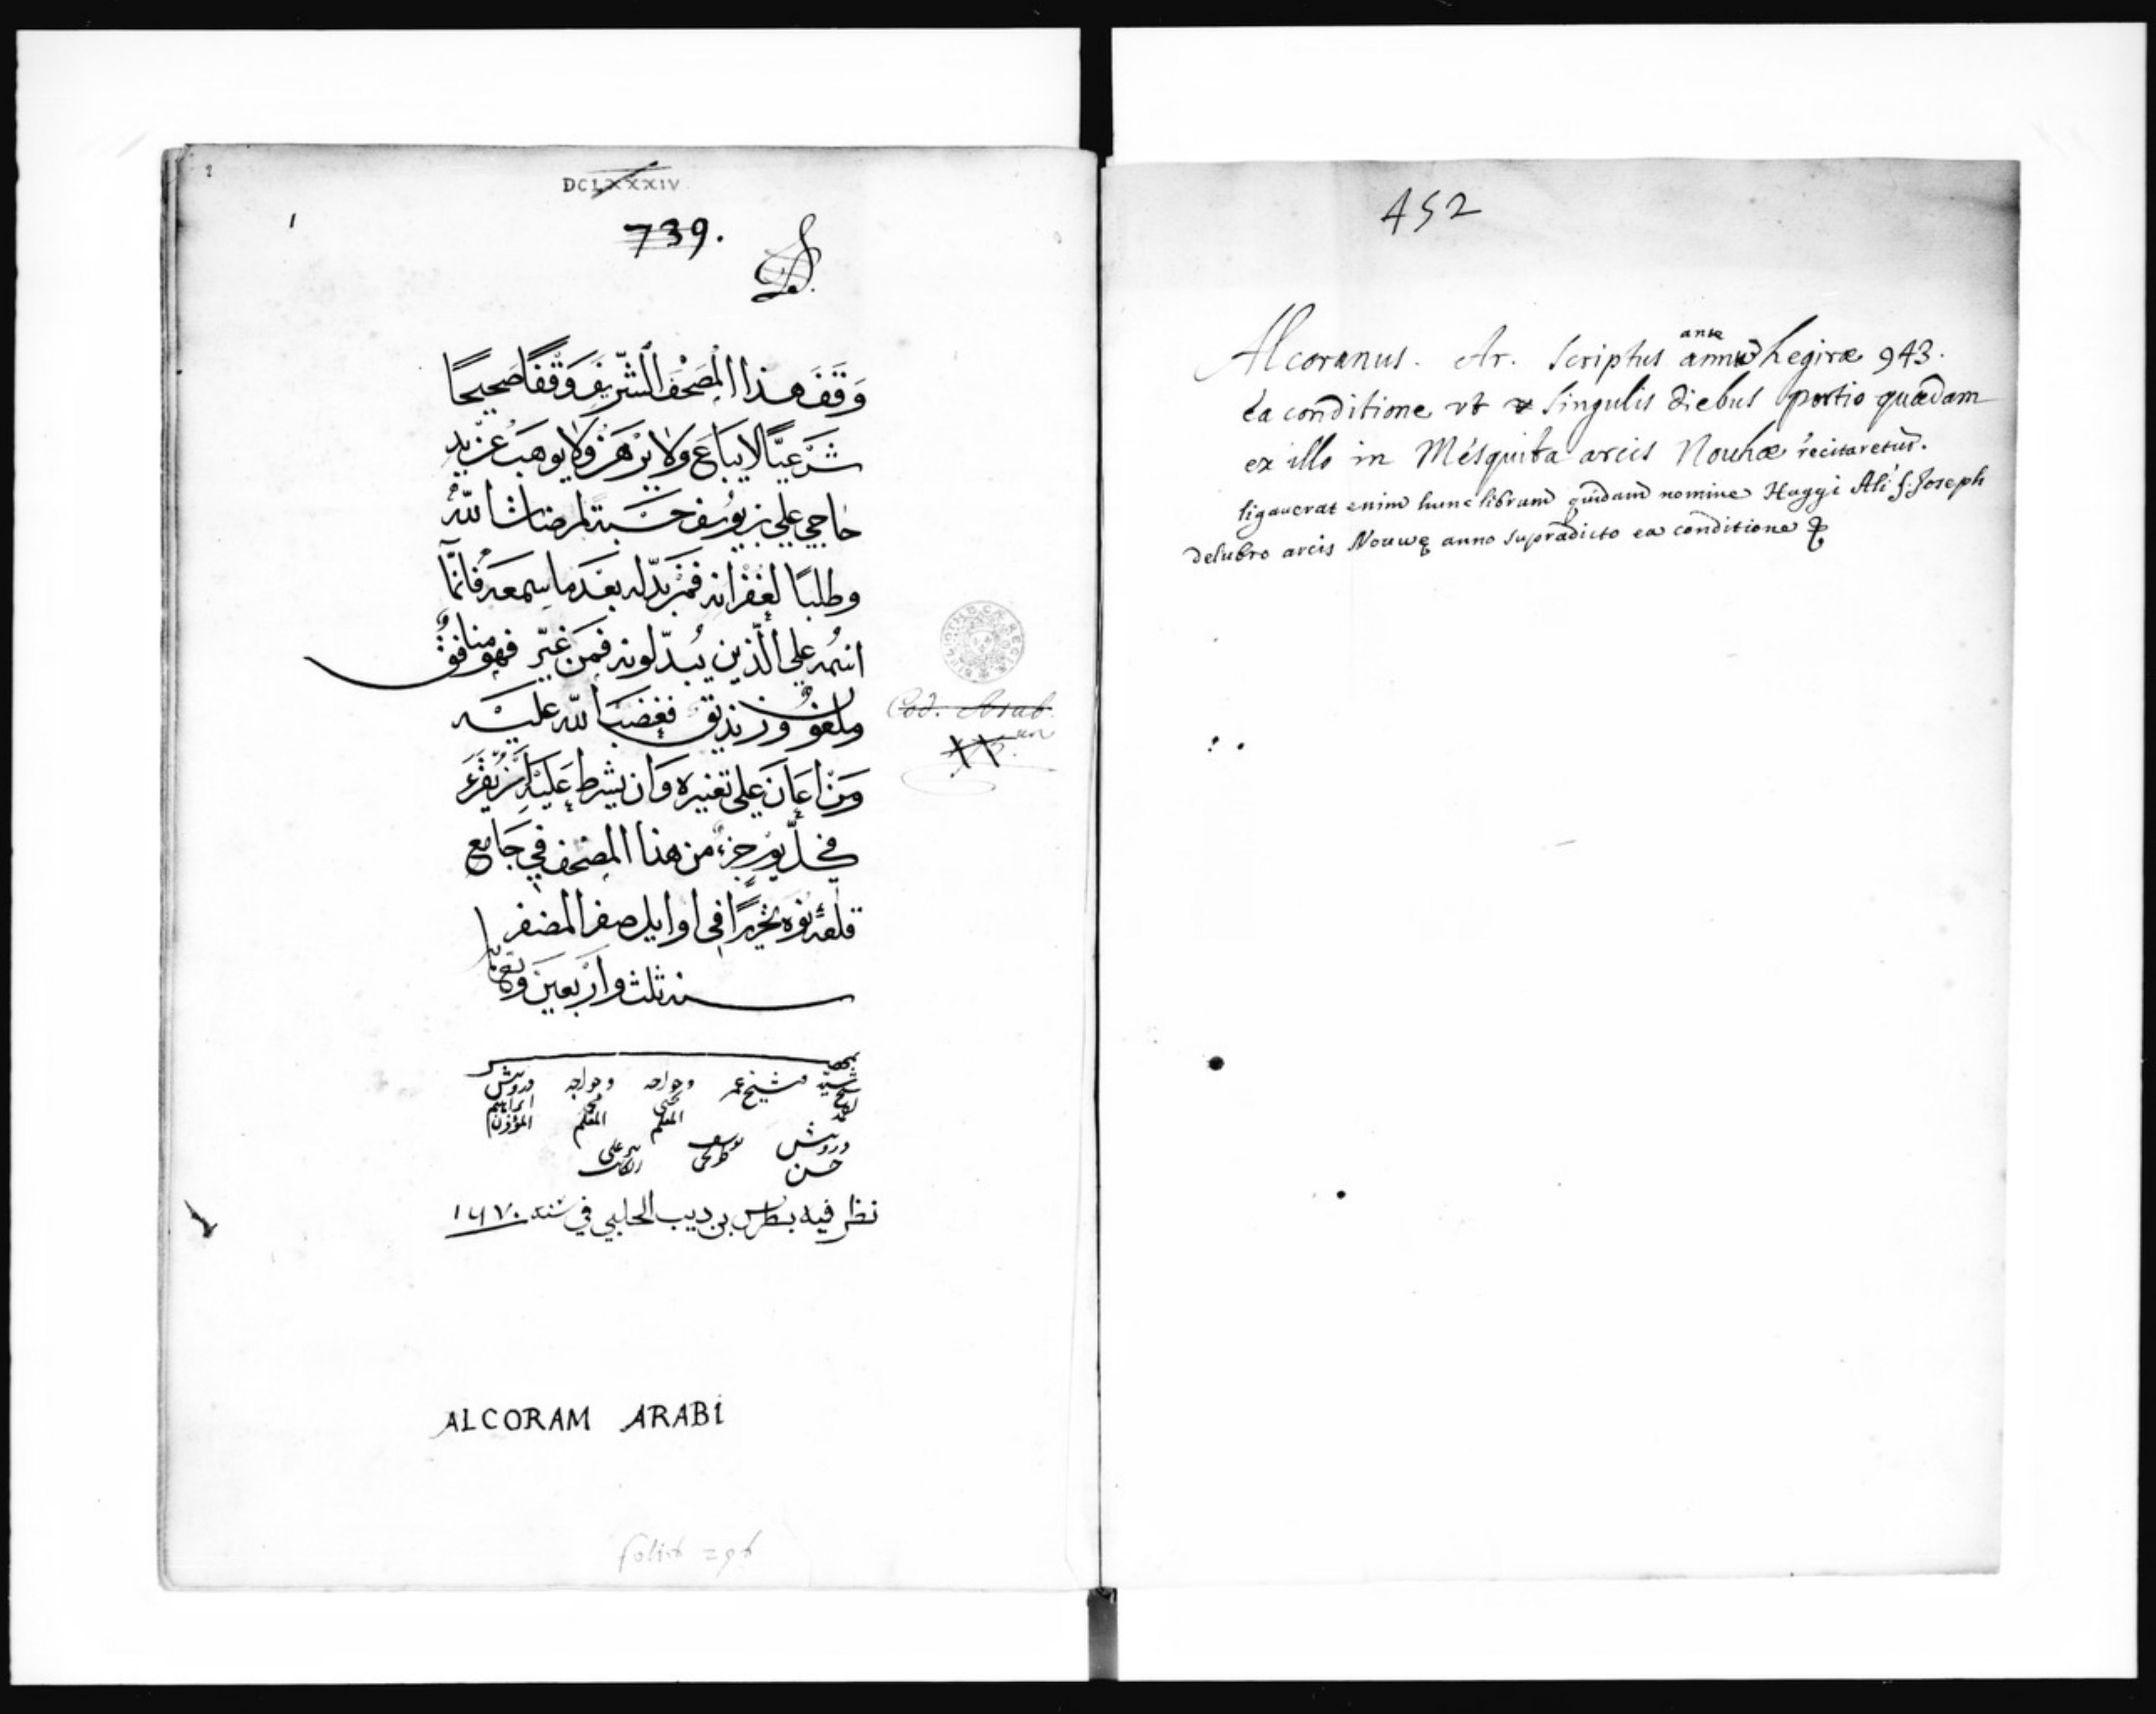 DCLXXXIV
739.
1
وَقَفَ هذا المصحَفَ الشّرِيفَ وَقْفًا صَحِيحًا
شَرْعِيًّا لا يباع ولا يرهن ولا يوهب
حاجي علي بن يوسف حسبة لمرضات الله
وطلبًا لغفرانه فمن بدّله بعد ما سمعه فانّمآ
اثمه على الّذين يبدّلونه فمن غيّر فهو منافق
وملعون وزنديق فغضب الله عليه
ومن اعان على تغييره وان يشرط عليه ان يقرء
في كلّ يوم جزء من هذا المصحف في جامع
قلعة نوه تحريرًا في اوايل صفر المضفر
سنه ثلث واربعين وتسعمائة
وشيخ عمر
وخواجه
يحيى
المعلم
وخواجه
محمد
المعلم
درويش
ابراهيم
المؤذن
درويش
حسن
يوسف
نظر فيه بطرس بن ديب الحلبي في سنة ١٦٧٠
ALCORAM ARABI
Cod. Arab.
452
Alcoranus. Ar. Scriptus ante annũ hegiræ 943.
ea conditione ut singulis diebus portio quædam
ex illo in Mésquita arcis Nouhæ recitaretur.
ligaverat enim hunc librum quidam nomine Haggi Ali f. Joseph
delubro arcis Nouwę anno supradicto ea conditione